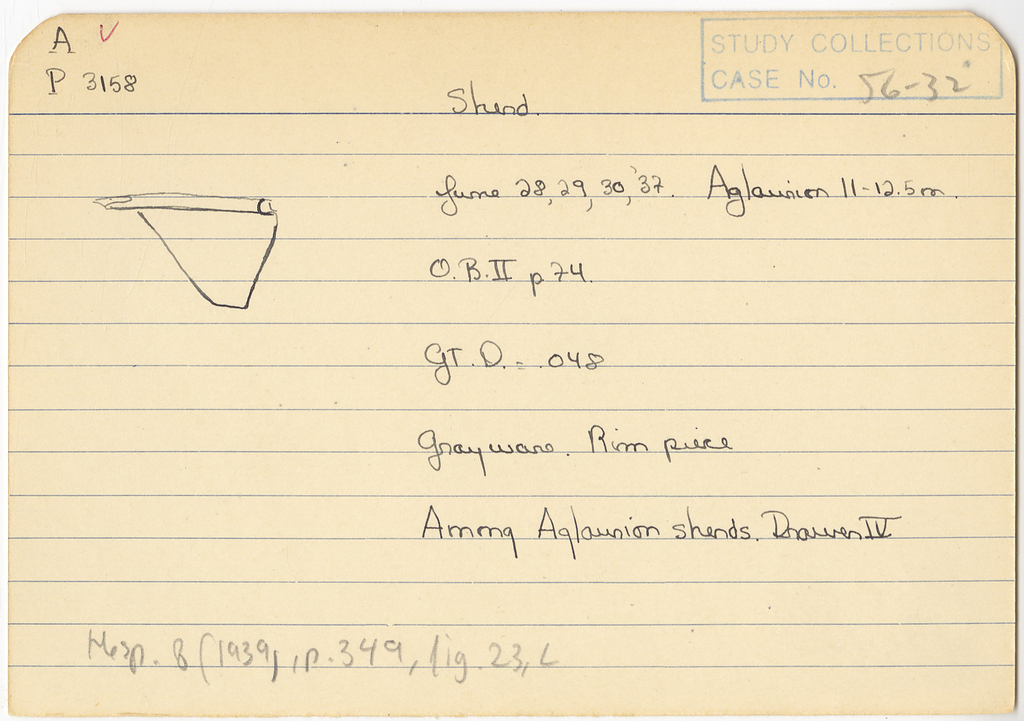 A
P 3158
STUDY COLLECTIONS
CASE No. 56-32
Sherd.
June 28, 29, 30, '37. Aglaurion 11-12.5m.
O.B.II p.74.
GT. D. = .048
Gray ware. Rim piece
Among Aglaurion sherds. Drawer IV
Hesp. 8 (1939), p. 349, fig. 23, L